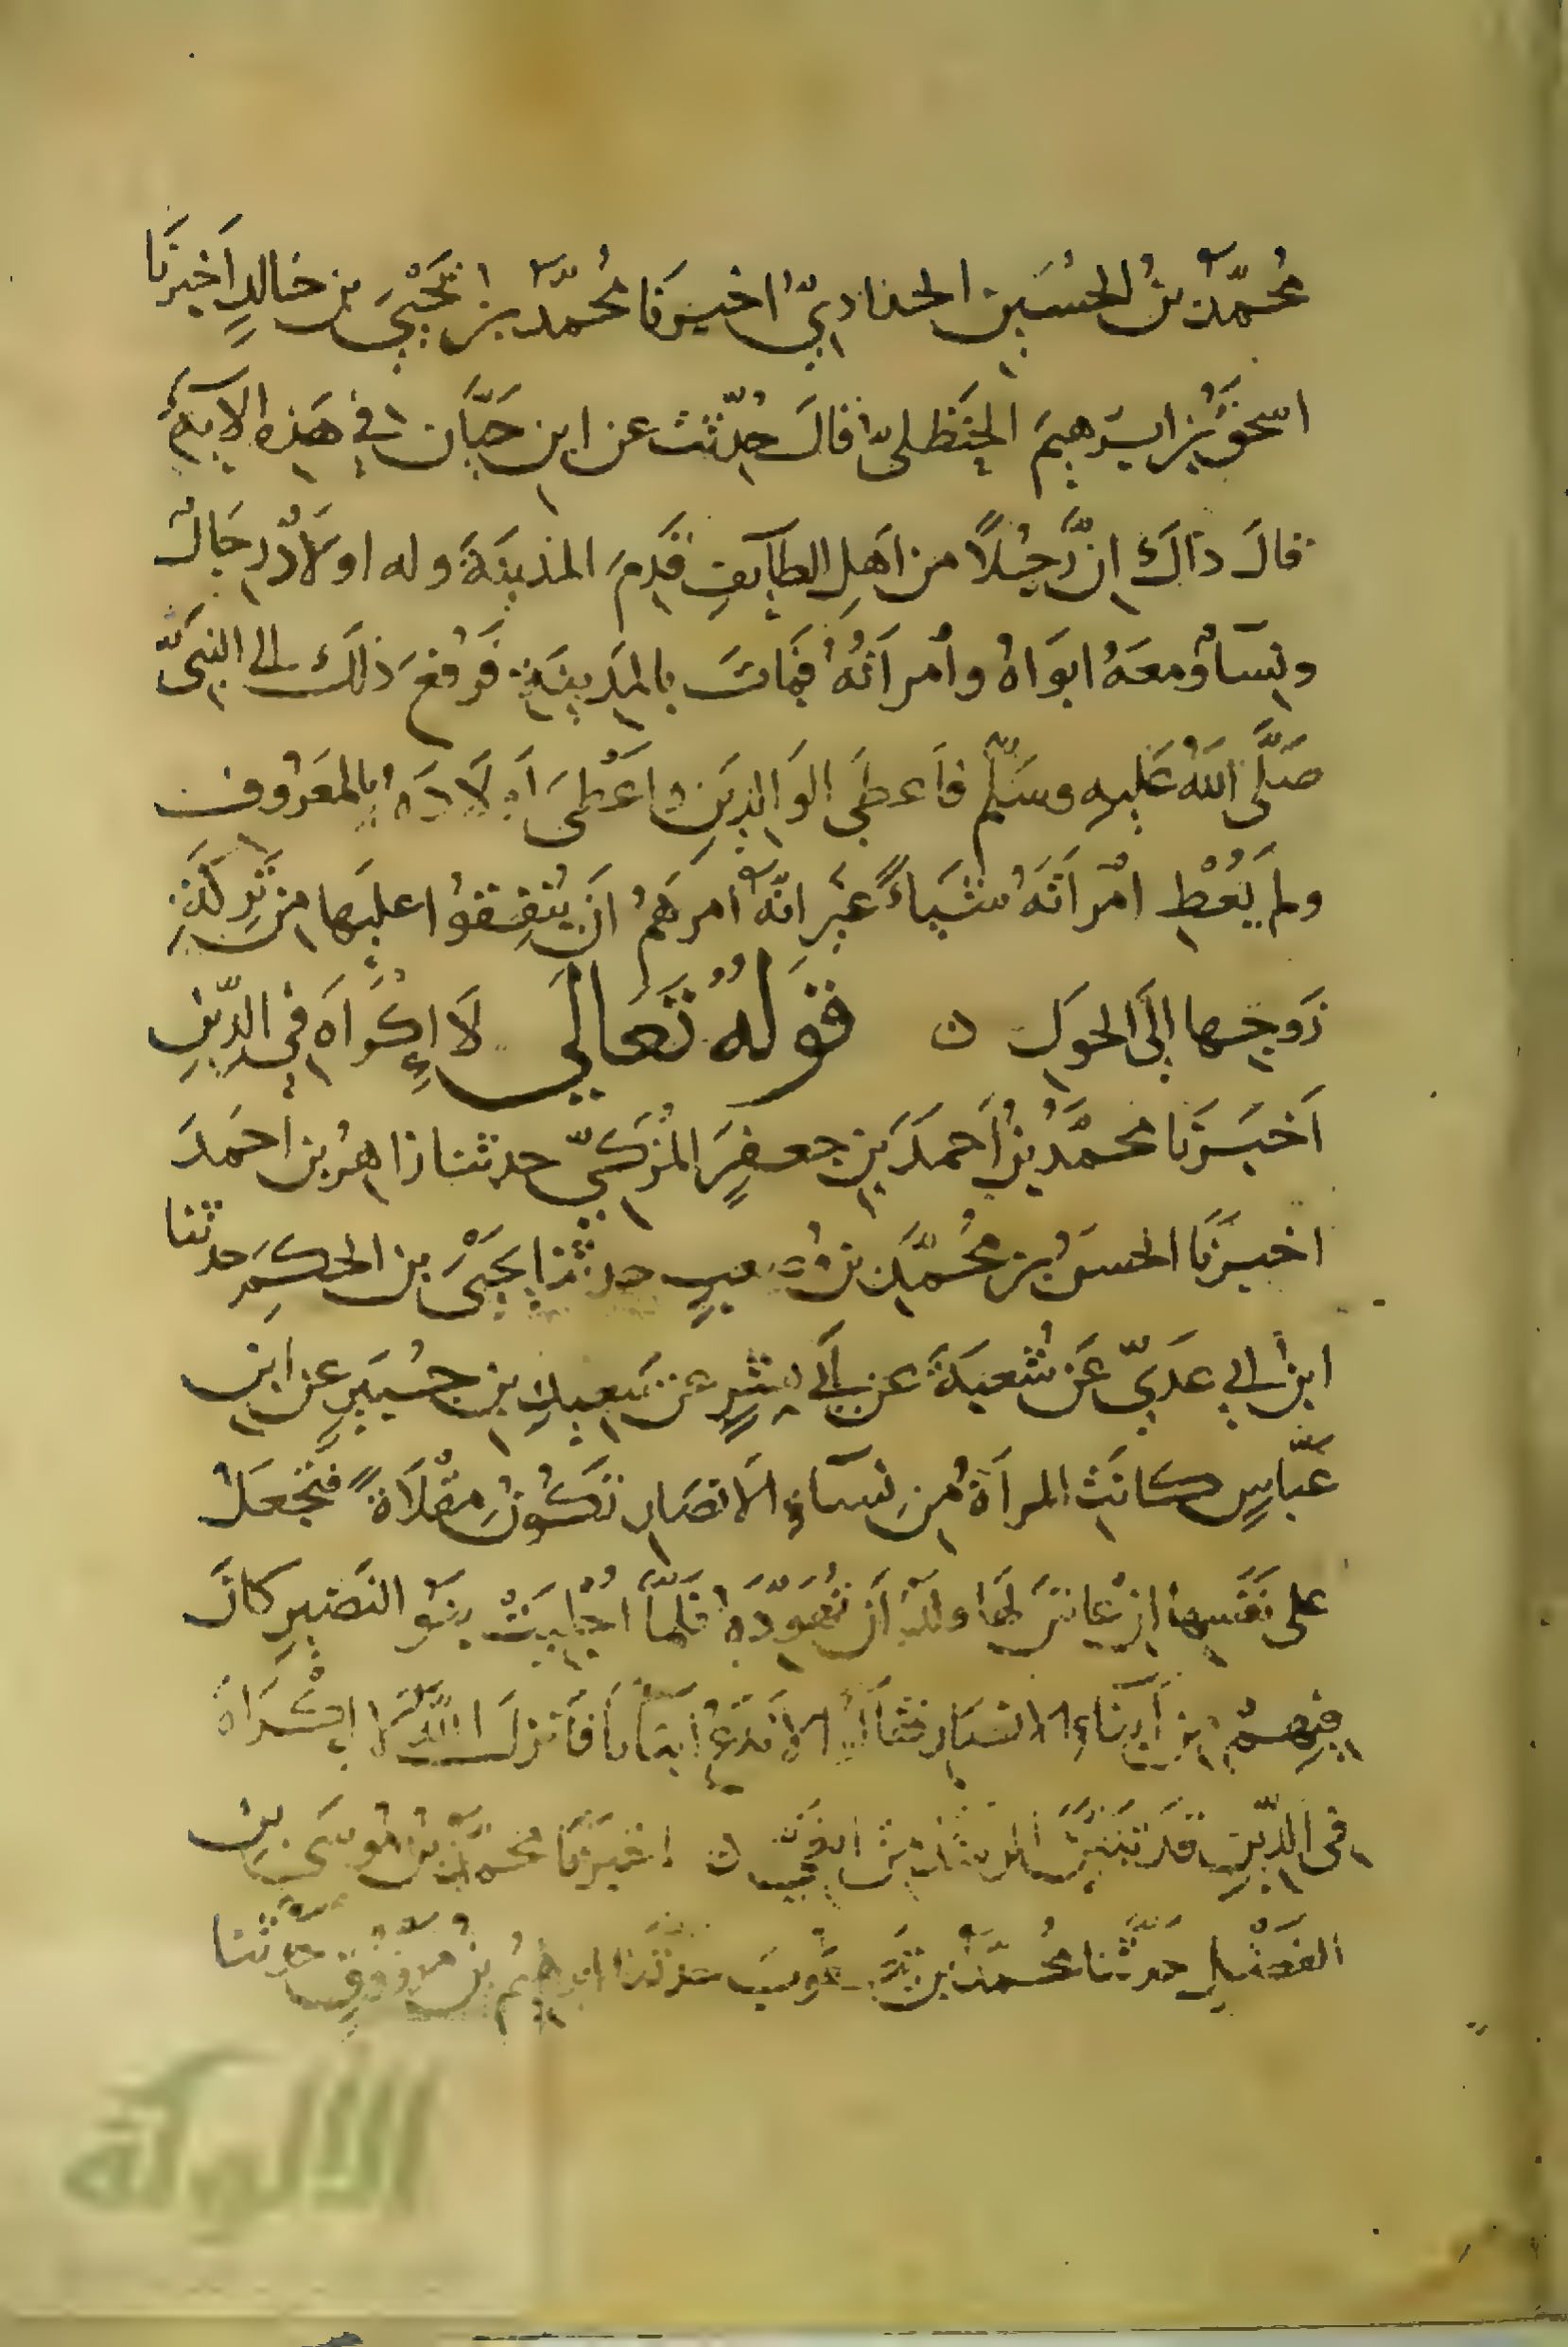 مُحمّدُ بنُ الحُسَينِ الحدّاديّ اخبرَنَا مُحمّدُ بن يَحْيَى بن خالدٍ اَخبرنَا
اسحقُ بن ابرٰهيمَ الحَنظلىّ قالَ حُدّثت عن ابن حَيَّان فى هَذِه الايةِ
قالَ ذاكَ انّ رَجُلاً من اَهلِ الطآئفِ قَدِمَ المَدينَةَ وله اولَادٌ رجَالٌ
ونِسَآءٌ ومعَهُ ابوَاهُ وامْراَتُهُ فمَاتَ بالمَدِينَةِ فرُفعَ ذلكَ الى النبىّ
صَلَّى اللهُ عَليهِ وسَلّم فاَعطَى الوَالِدَينِ واَعْطى اَولَادَهُ بالمَعْرُوف
ولم يُعْطِ امْرَاَتَهُ شيَاءً غيرَ انّه اَمرَهُم اَن يُنفِقُوا عليهَا مِن تَرِكَةِ
زَوجِها اِلَى الحَولِ ه قَولُهُ تَعَالَى لَا اِكْرَاهَ فى الدّينِ
اَخبَرَنا محمّدُ بنُ اَحمدَ بنِ جعفرٍ المُزَكّى حدثنا زاهرُ بن احمَدَ
اخبرَنَا الحسَينُ بن مُحَمّدِ بنِ مُصعبٍ حدثنا يَحيَى بن الحكمِ حدثنا
ابنُ ابى عدىّ عَن شُعبَةَ عن اَبى بشرٍ عن سَعيدِ بنِ جُبَيرٍ عن ابنِ
عَبّاسٍ كانَتِ المراَةُ مِن نِسَآءِ الانصَارِ تَكُونُ مِقْلَاةً فتَجعَلُ
على نَفْسِها اِن عاشَ لَهَا ولدٌ اَن تُهَوّدَهُ فلَمَّا اُجْلِيَتْ بنو النَضيرِ كانَ
فيهِم مِن اَبنَاءِ الانصَارِ فقَالُوا لا نَدَعُ اَبنَآءنَا فاَنزلَ اللهُ لَا اِكْرَاهَ
فى الدّينِ قَد تَبَيَّنَ الرشْدُ مِن الغَىِّ ه اخبَرَنَا محمّدُ بنُ مُوسَى بنِ
الفَضْلِ حدّثَنا مُحمّدُ بن يَعقُوبَ حدثَنا ابرهيمُ بنُ مَرزُوقٍ حدثنا
الألوكة